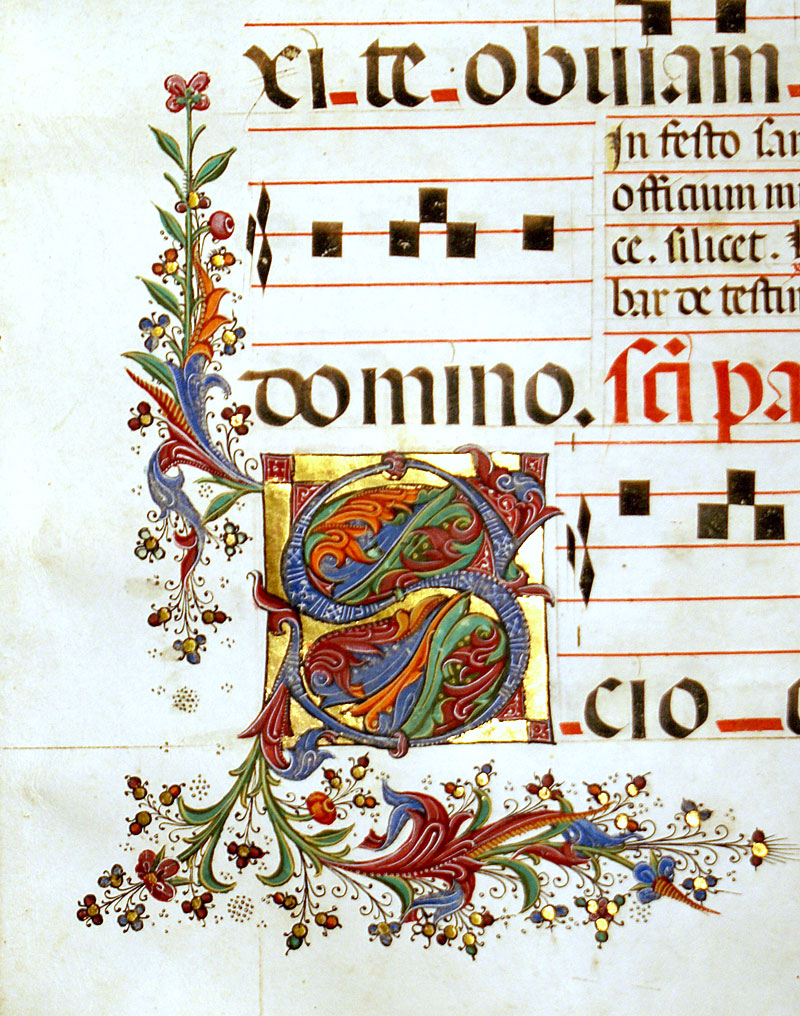 xi te obuiam
In festo san
officium mi
ce. silicet.
bar de testim
domino. sci pa
Scio